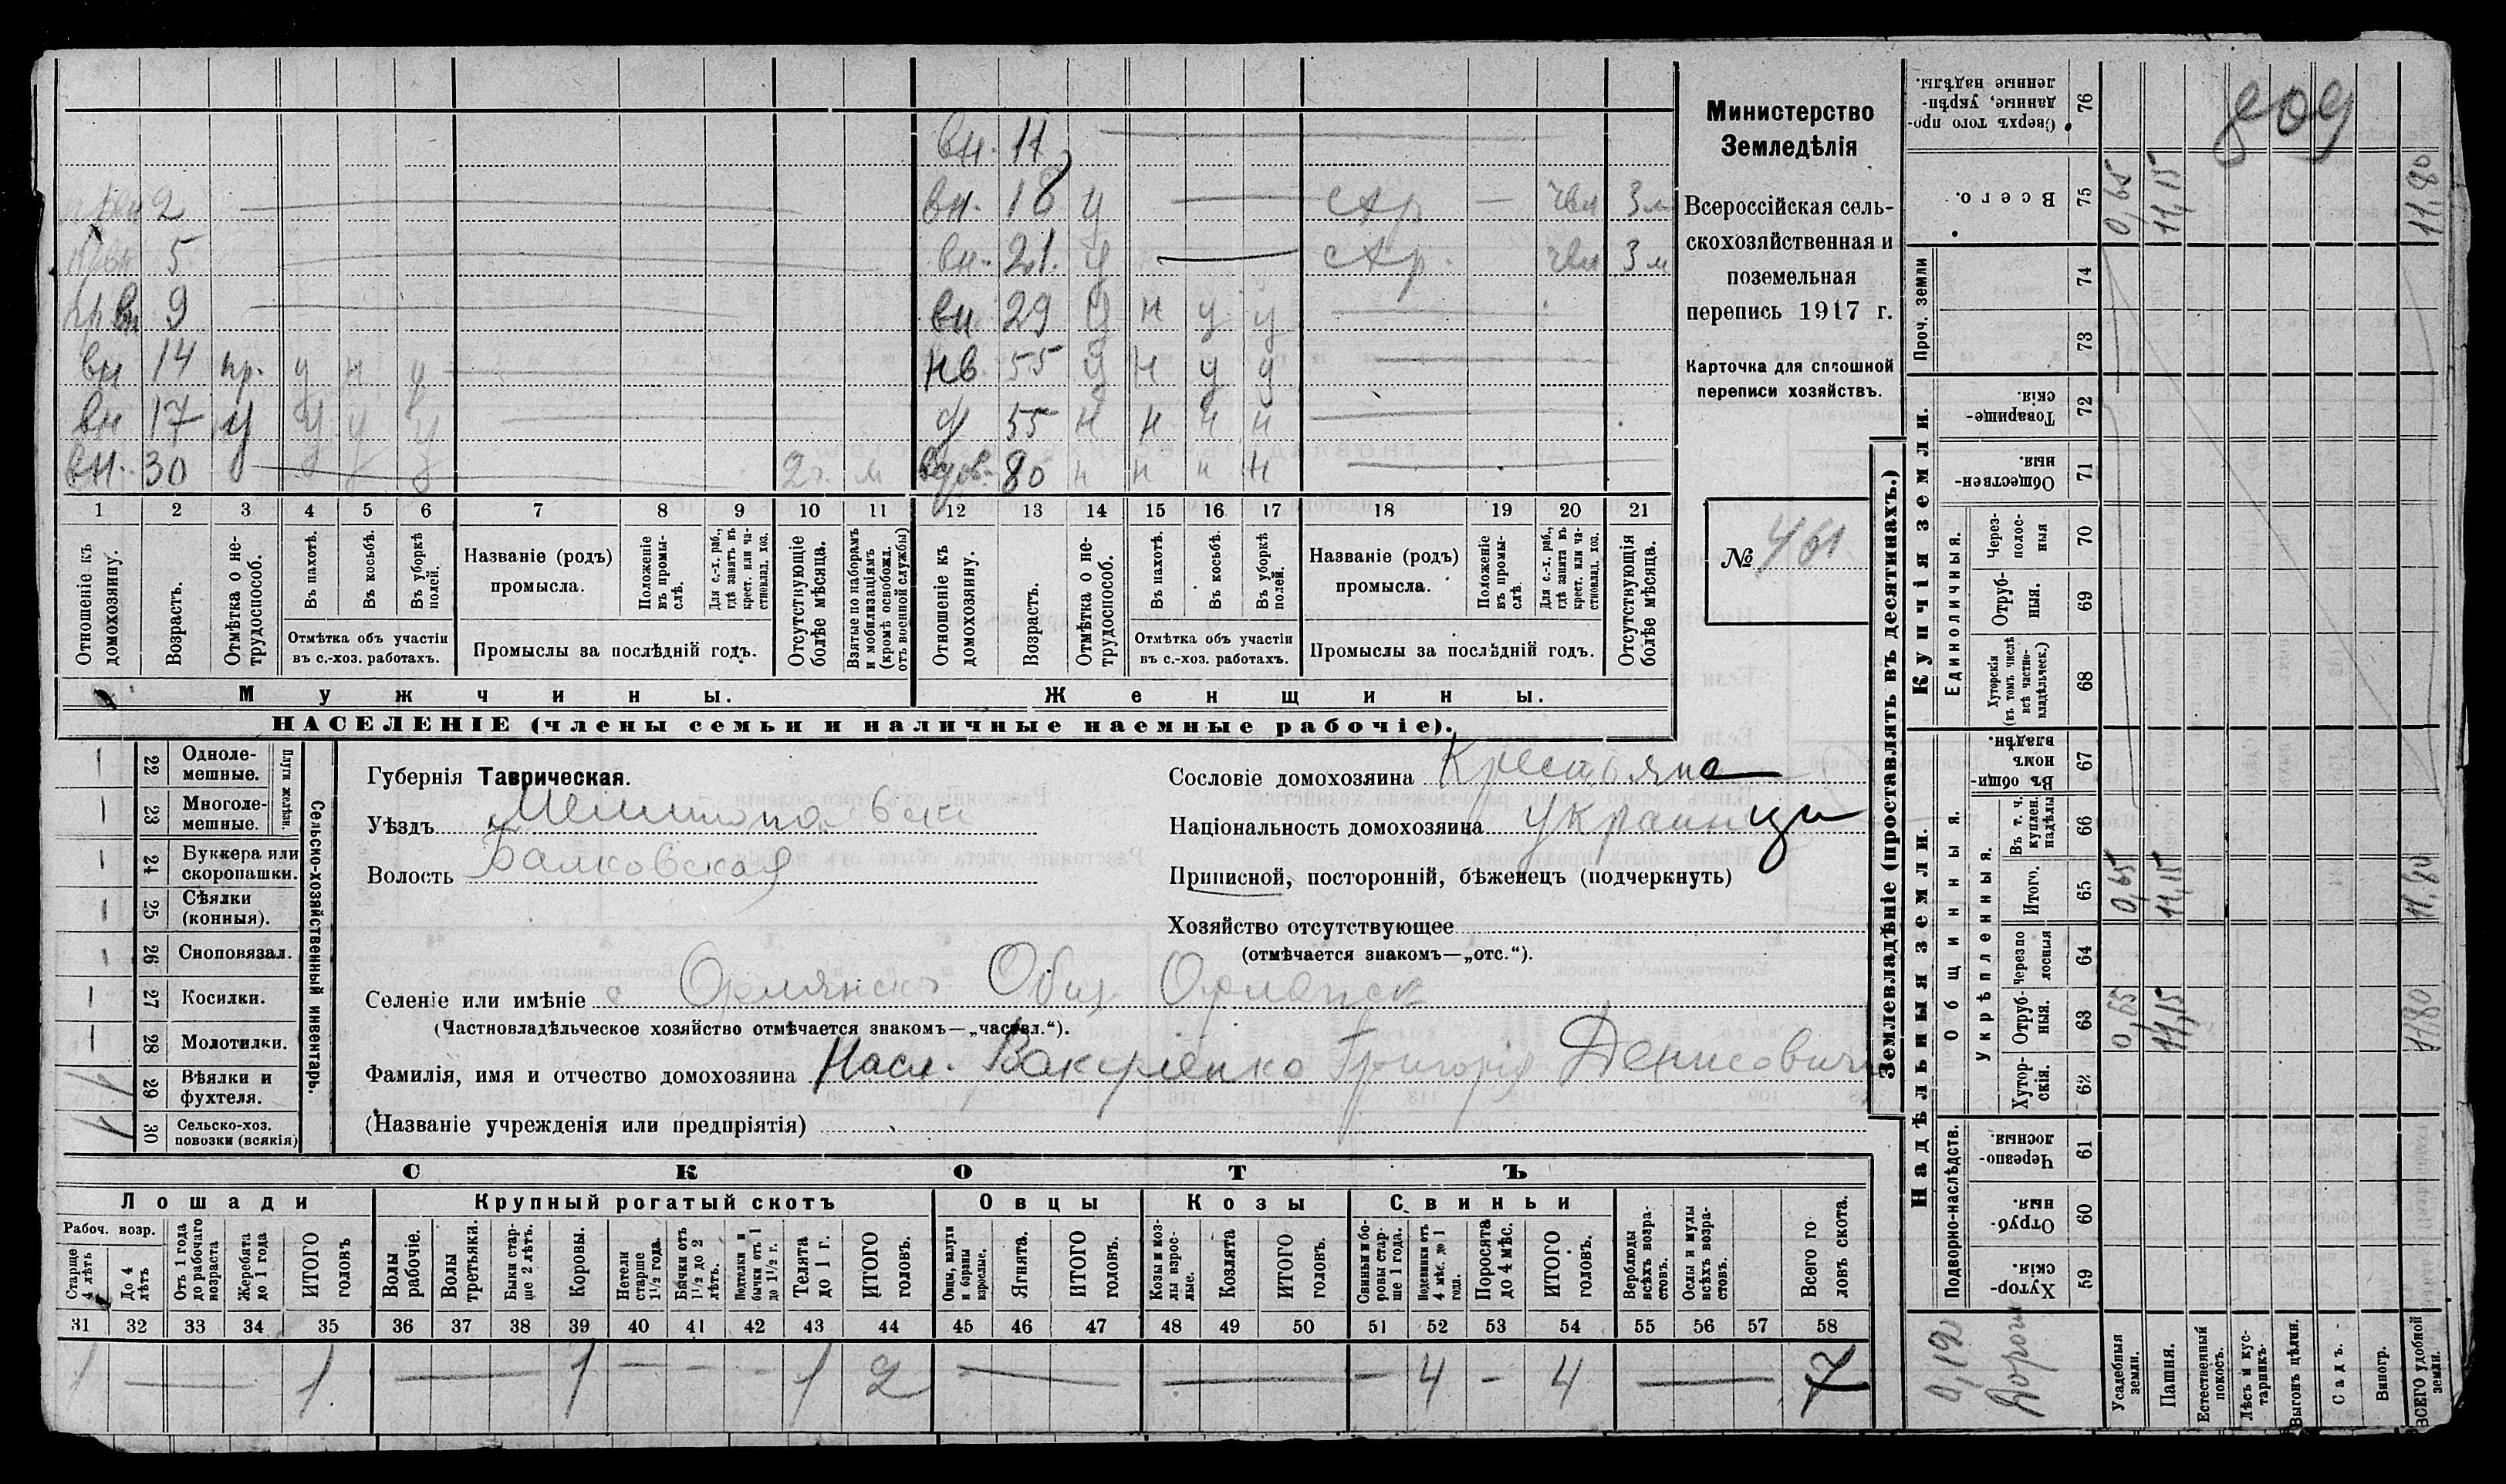 вн. 11
2
вн. 18 у — стр — 3 м
5
вн. 21. у — стр. 3 м
пр вн 9
вн 29 у н у у
вн 14 пр. у н у
нв 55 у н у у
вн 17 у у у у
55 н н н н
вн. 30
2 г. м
вдов. 80 н н н н
1 2 3 4 5 6 7 8 9 10 11 12 13 14 15 16 17 18 19 20 21
Отношеніе къ домохозяину.
Возрастъ.
Отмѣтка о нетрудоспособ.
Въ пахотѣ.
Въ косьбѣ.
Въ уборкѣ полей.
Отмѣтка объ участіи въ с.-хоз. работахъ.
Названіе (родъ) промысла.
Положеніе въ промыслѣ.
Для с.-х. раб., гдѣ занятъ въ крест. или частновлад. хоз.
Промыслы за послѣдній годъ.
Отсутствующіе болѣе мѣсяца.
Взятые по наборамъ и мобилизаціямъ (кромѣ освобожд. отъ военной службы)
Отношеніе къ домохозяину.
Возрастъ.
Отмѣтка о нетрудоспособ.
Въ пахотѣ.
Въ косьбѣ.
Въ уборкѣ полей.
Отмѣтка объ участіи въ с.-хоз. работахъ.
Названіе (родъ) промысла.
Положеніе въ промыслѣ
Для с.-х. раб., гдѣ занята въ крест. или частновлад. хоз.
Промыслы за послѣдній годъ.
Отсутствующія болѣе мѣсяца.
Мужчины.
Женщины.
НАСЕЛЕНІЕ (члены семьи и наличные наемные рабочіе).
Министерство
Земледѣлія
Всероссійская сель-
скохозяйственная и
поземельная
перепись 1917 г.
Карточка для сплошной
переписи хозяйствъ.
№ 461
Сельско-хозяйственный инвентарь.
Плуги желѣзн.
1 22 Однолемешные.
1 23 Многолемешные.
1 24 Буккера или скоропашки.
1 25 Сѣялки (конныя).
1 26 Сноповязал.
1 27 Косилки.
1 28 Молотилки.
29 Вѣялки и фухтеля.
30 Сельско-хоз. повозки (всякія)
Губернія Таврическая.
Уѣздъ Мелитопольскій
Волость Балковская
Сословіе домохозяина Крестьяне
Національность домохозяина Украинцы
Приписной, посторонній, бѣженецъ (подчеркнуть)
Хозяйство отсутствующее
(отмѣчается знакомъ—„отс.“).
Селеніе или имѣніе с Орлянскъ Общ Орлянск
(Частновладѣльческое хозяйство отмѣчается знакомъ—„частвл.“).
Фамилія, имя и отчество домохозяина Насл. Григорій Денисович
(Названіе учрежденія или предпріятія)
СКОТЪ
Лошади
Крупный рогатый скотъ
Овцы
Козы
Свиньи
Рабоч. возр.
Старше 4 лѣтъ
До 4 лѣтъ
Отъ 1 года до рабочаго возраста
Жеребята до 1 года
ИТОГО головъ
Волы рабочіе.
Волы третьяки.
Быки старше 2 лѣтъ.
Коровы.
Нетели старше 1½ года.
Бычки отъ 1½ до 2 лѣтъ.
Подтелки и бычки отъ 1 до 1½ г.
Телята до 1 г.
ИТОГО головъ.
Овцы, валухи и бараны взрослые.
Ягнята.
ИТОГО головъ.
Козы и козлы взрослые.
Козлята
ИТОГО головъ.
Свиньи и боровы старше 1 года.
Подсвинки отъ 4 мѣс. до 1 года.
Поросята до 4 мѣс.
ИТОГО головъ.
Верблюды всѣхъ возрастовъ.
Ослы и мулы всѣхъ возрастовъ.
Всего головъ скота.
31 32 33 34 35 36 37 38 39 40 41 42 43 44 45 46 47 48 49 50 51 52 53 54 55 56 57 58
1 — 1 — 1 — — — 1 2 — — — 4 — 4 — 7
Землевладѣніе (проставлять въ десятинахъ.)
Купчія земли.
Надѣльныя земли.
Проч. земли
Единоличныя.
Общинныя.
Укрѣпленныя.
Подворно-наслѣдств.
Сверхъ того проданные, укрѣпленные надѣлы. 76
Всего. 75 0,65 11,15 11,80
74
73
Товарищескія 72
Общественныя. 71
Черезполосныя 70
Отрубныя. 69
Хуторскія (въ томъ числѣ всѣ частновладѣльческ.) 68
Въ общинномъ владѣн. 67
Въ т. ч. куплен. надѣлы 66
Итого. 65 0,65 11,15 11,80
Черезполосныя 64
Отрубныя. 63 0,65 11,15 11,80
Хуторскія. 62
Черезполосныя. 61
Отрубныя. 60
Хуторскія. 59
Усадебныя земли.
Пашня.
Естественный покосъ.
Лѣсъ и кустарникъ.
Выгонъ цѣлин.
Садъ.
Виногр.
ВСЕГО удобной земли.
0,190
Дорог